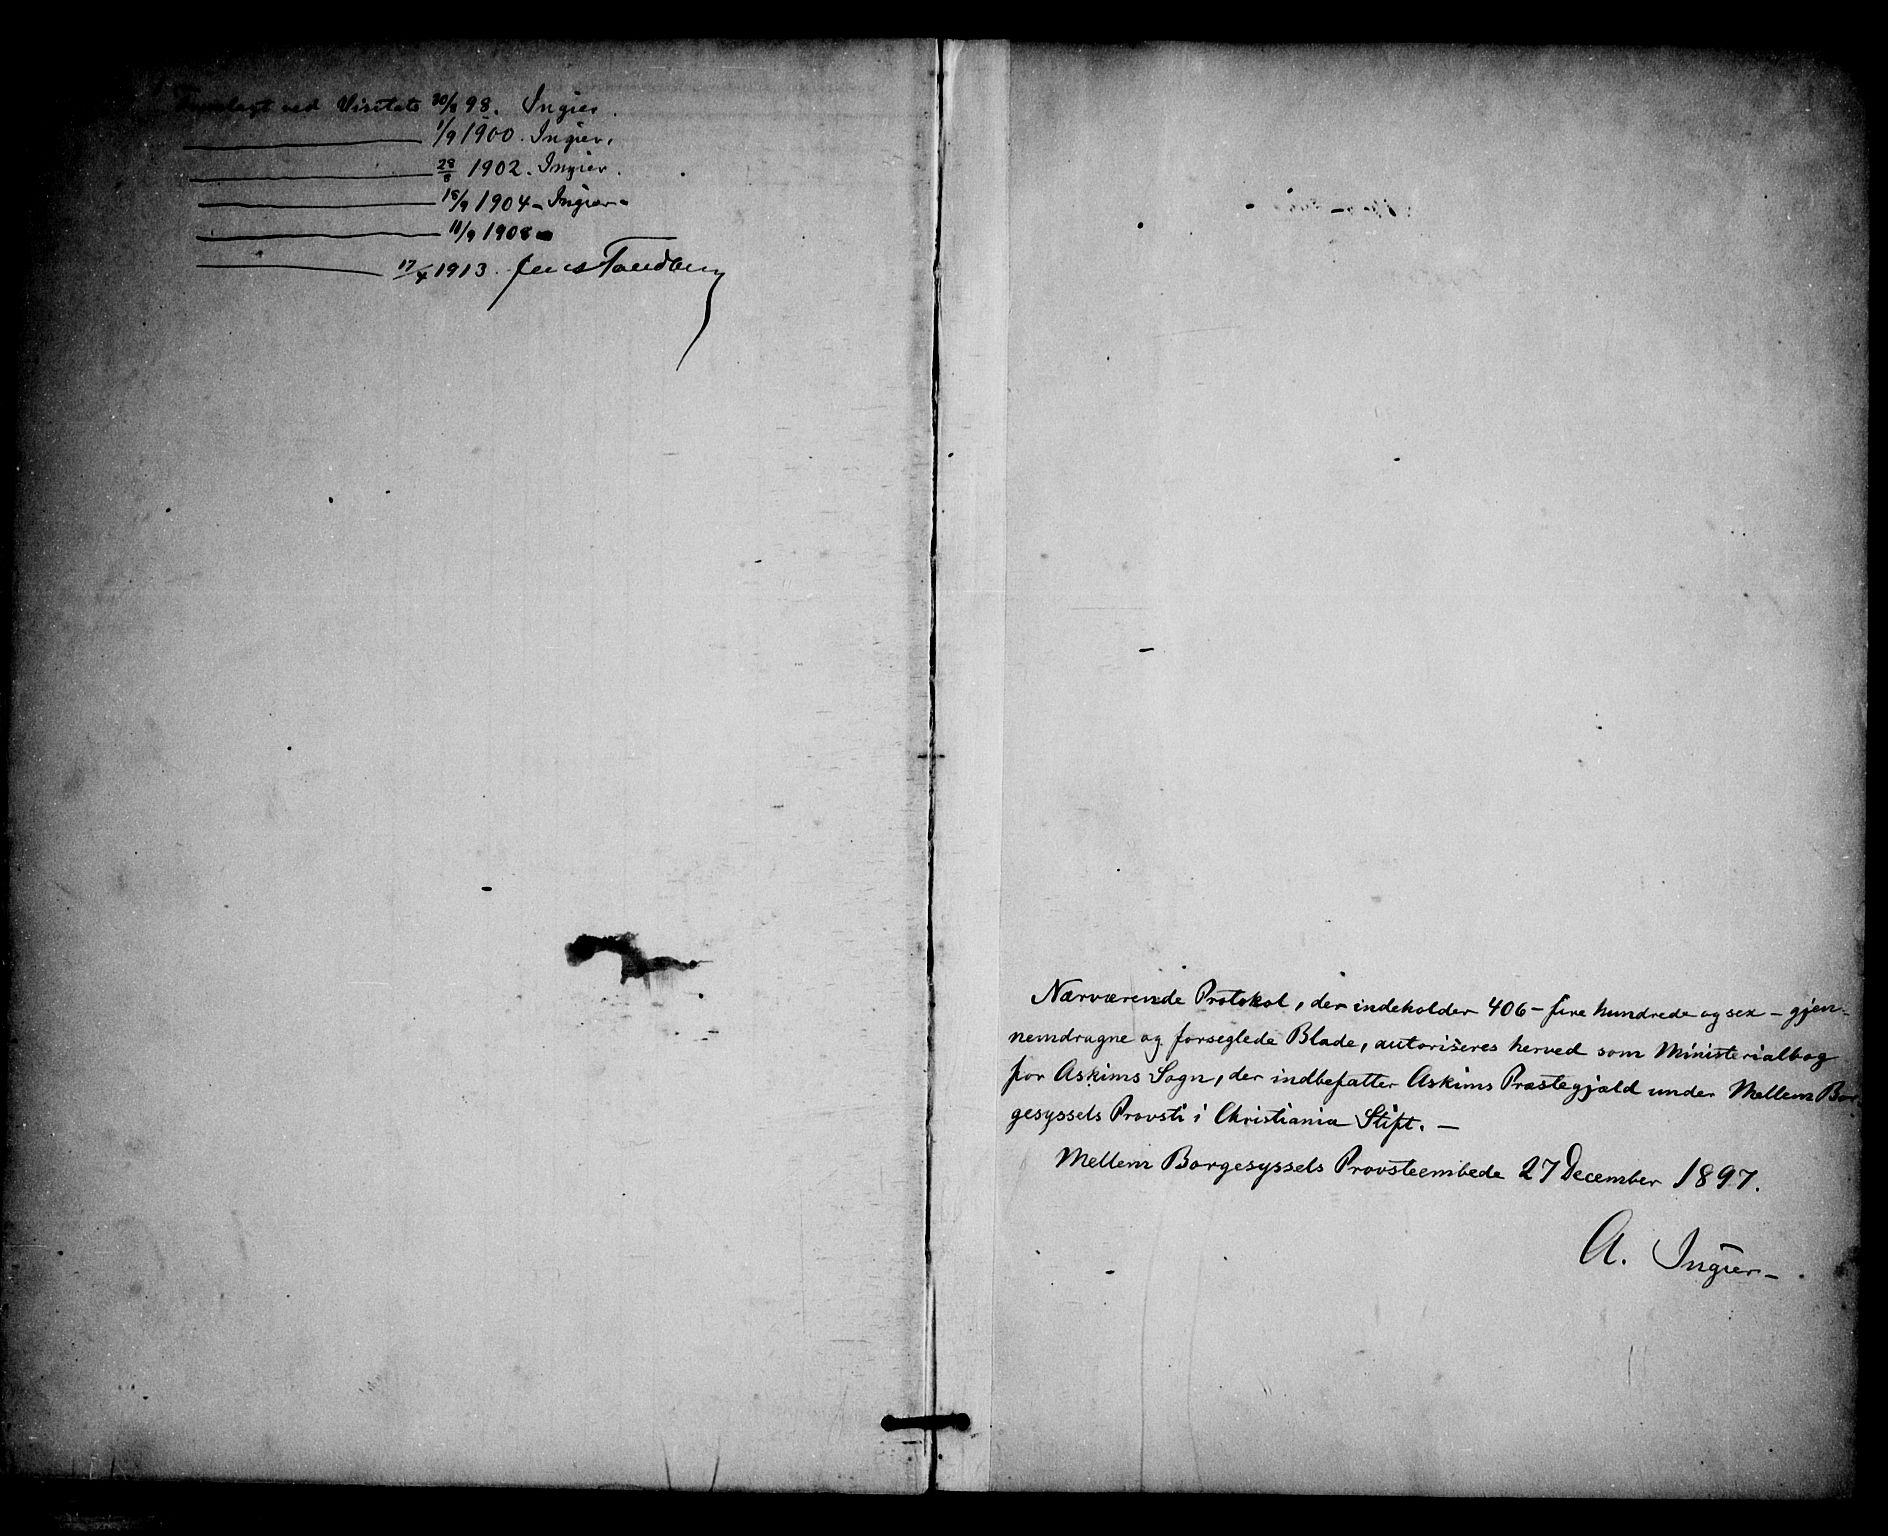 Fremlagt ved Visitats 30/8 98. Ingier.
1/9 1900. Ingier.
28/8 1902. Ingier.
18/9 1904 - Ingier -
11/9 1908
17/4 1913. Jens Tandberg
Nærværende Protokol, der indeholder 406 - fire hundrede og sex - gjen-
nemdragne og forseglede Blade, autoriseres herved som Ministerialbog
for Askims Sogn, der indbefatter Askims Præstegjæld under Mellem Bor-
gesyssels Provsti i Christiania Stift. —
Mellem Borgesyssels Provsteembede 27 December 1897.
A. Ingier -